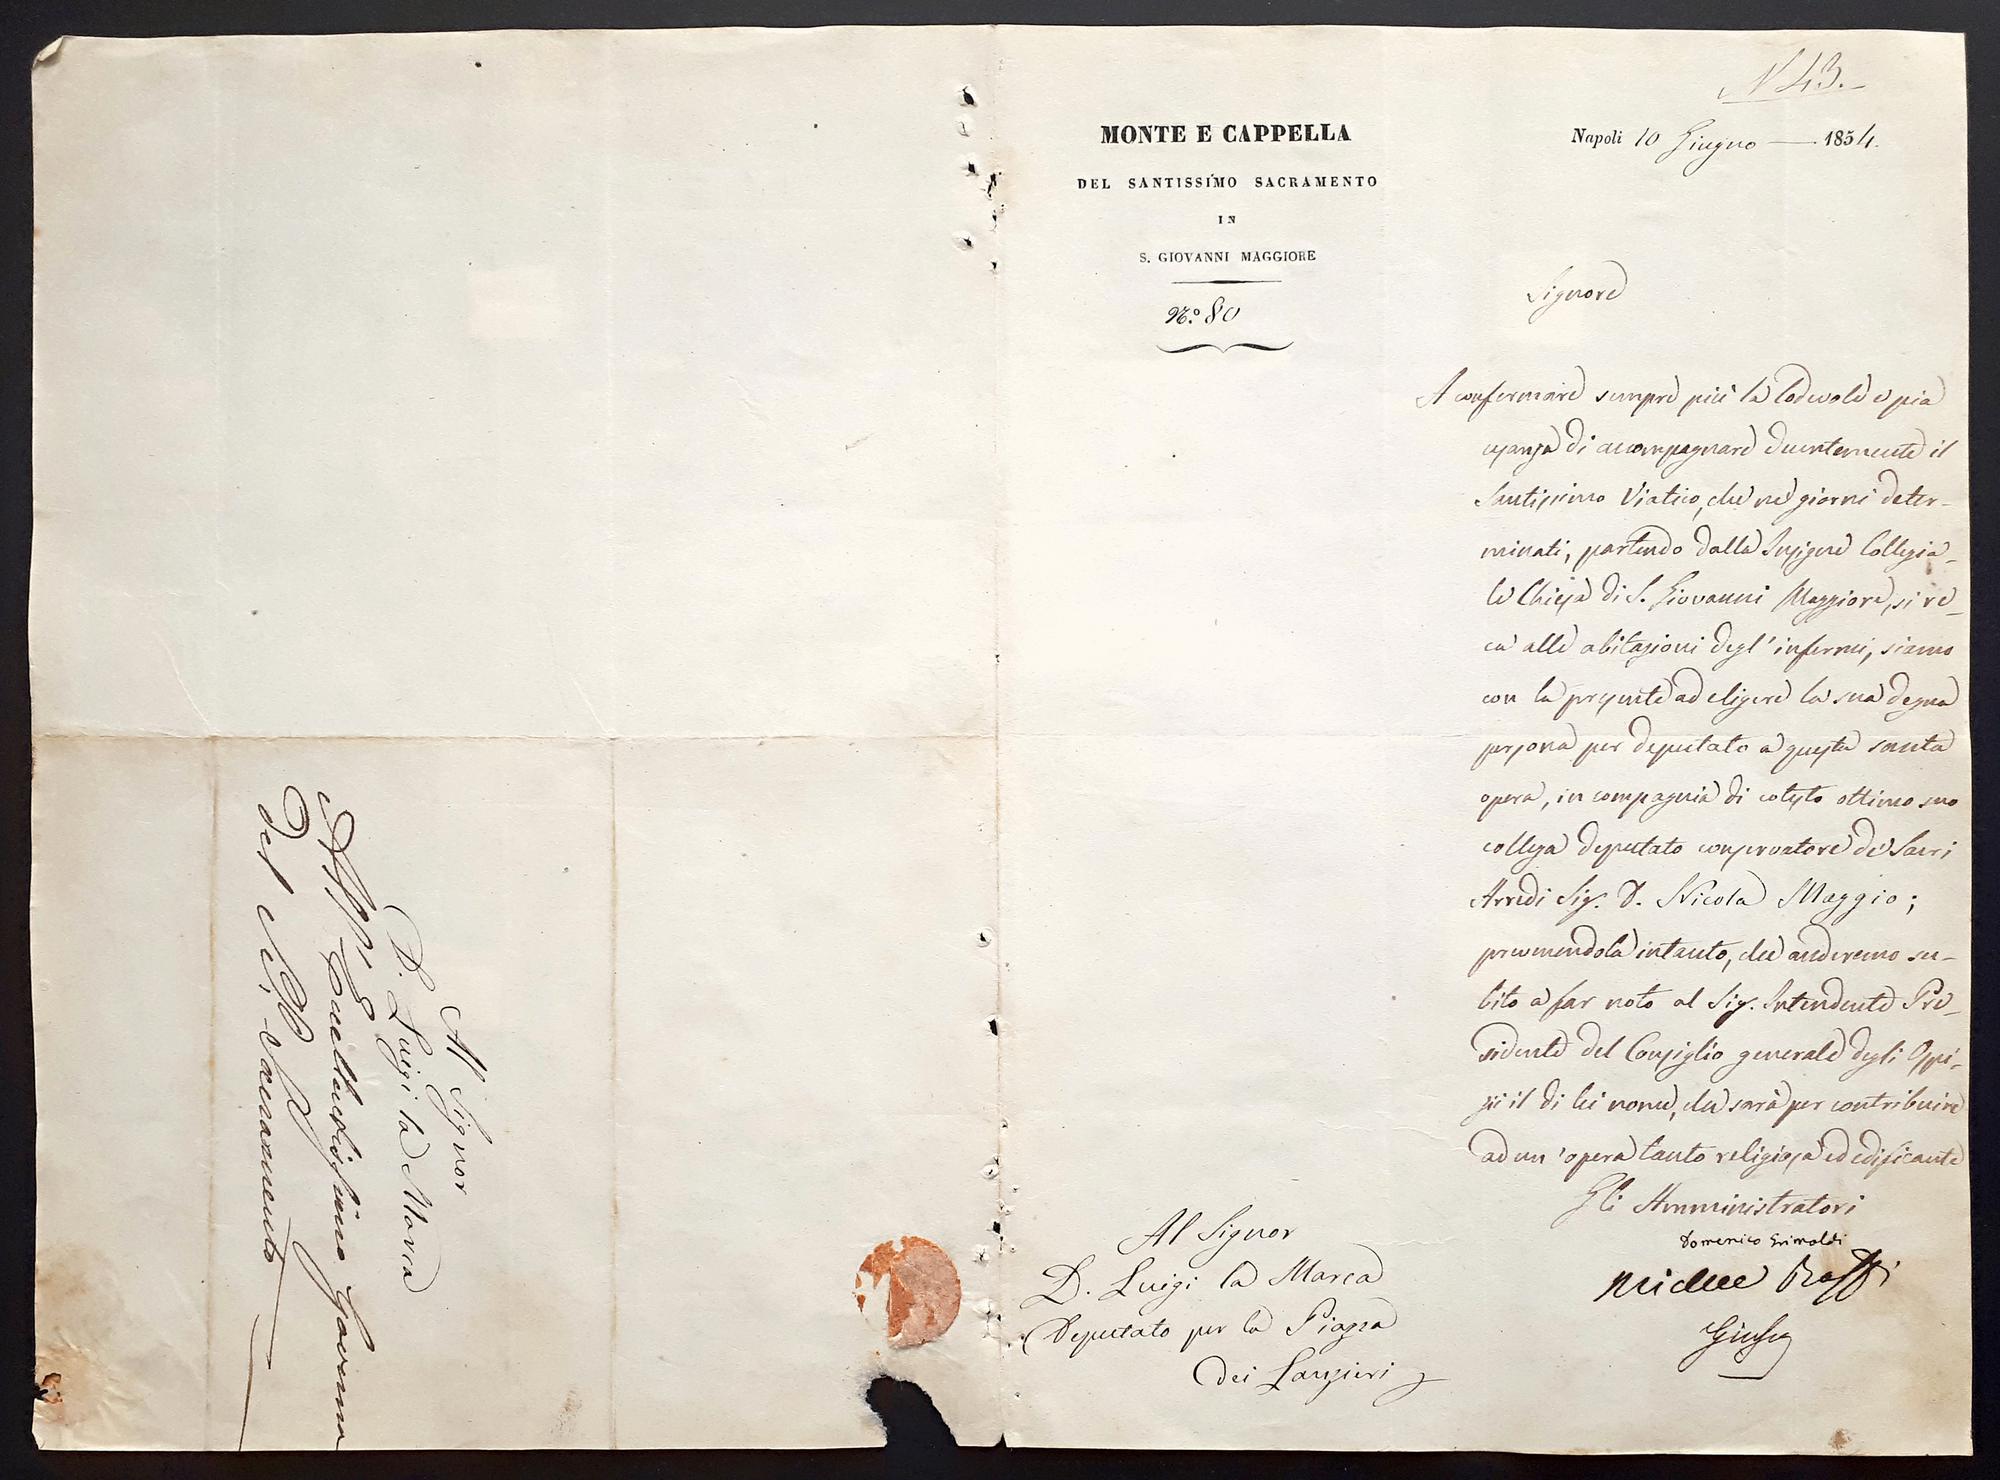 N 43.
MONTE E CAPPELLA
DEL SANTISSIMO SACRAMENTO
IN
S. GIOVANNI MAGGIORE
N.º 80
Napoli 10 Giugno — 1854.
Signore
A confermare sempre più la lodevole e pia
usanza di accompagnare decentemente il
Santissimo Viatico, che ne' giorni deter-
minati, partendo dalla Insigne Collegia-
le Chiesa di S. Giovanni Maggiore, si re-
ca alle abitazioni degl'infermi, siamo
con la presente ad eligere la sua degna
persona per deputato a questa santa
opera, in compagnia di cotesto ottimo suo
collega deputato conservatore de' Sacri
Arredi Sig. D. Nicola Maggio;
prevenendola intanto, che anderemo su-
bito a far noto al Sig. Intendente Pre-
sidente del Consiglio generale degli Ospi-
zii il di lei nome, che sarà per contribuire
ad un'opera tanto religiosa ed edificante
Gli Amministratori
Domenico Grimaldi
Michele
Al Signor
D. Luigi la Marca
Deputato per la Piazza
dei Lanzieri
Al Signor
D. Luigi la Marca
del SS. Sacramento